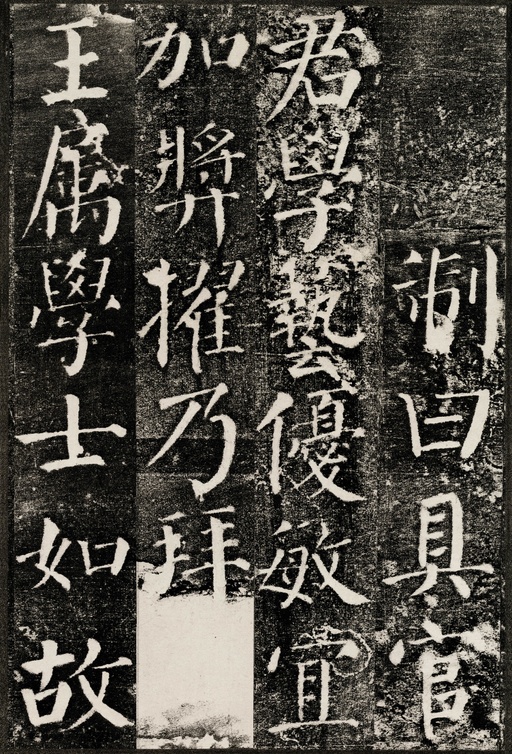 制曰具官
君學藝優敏宜
加奨擢乃拜
王属學士如故